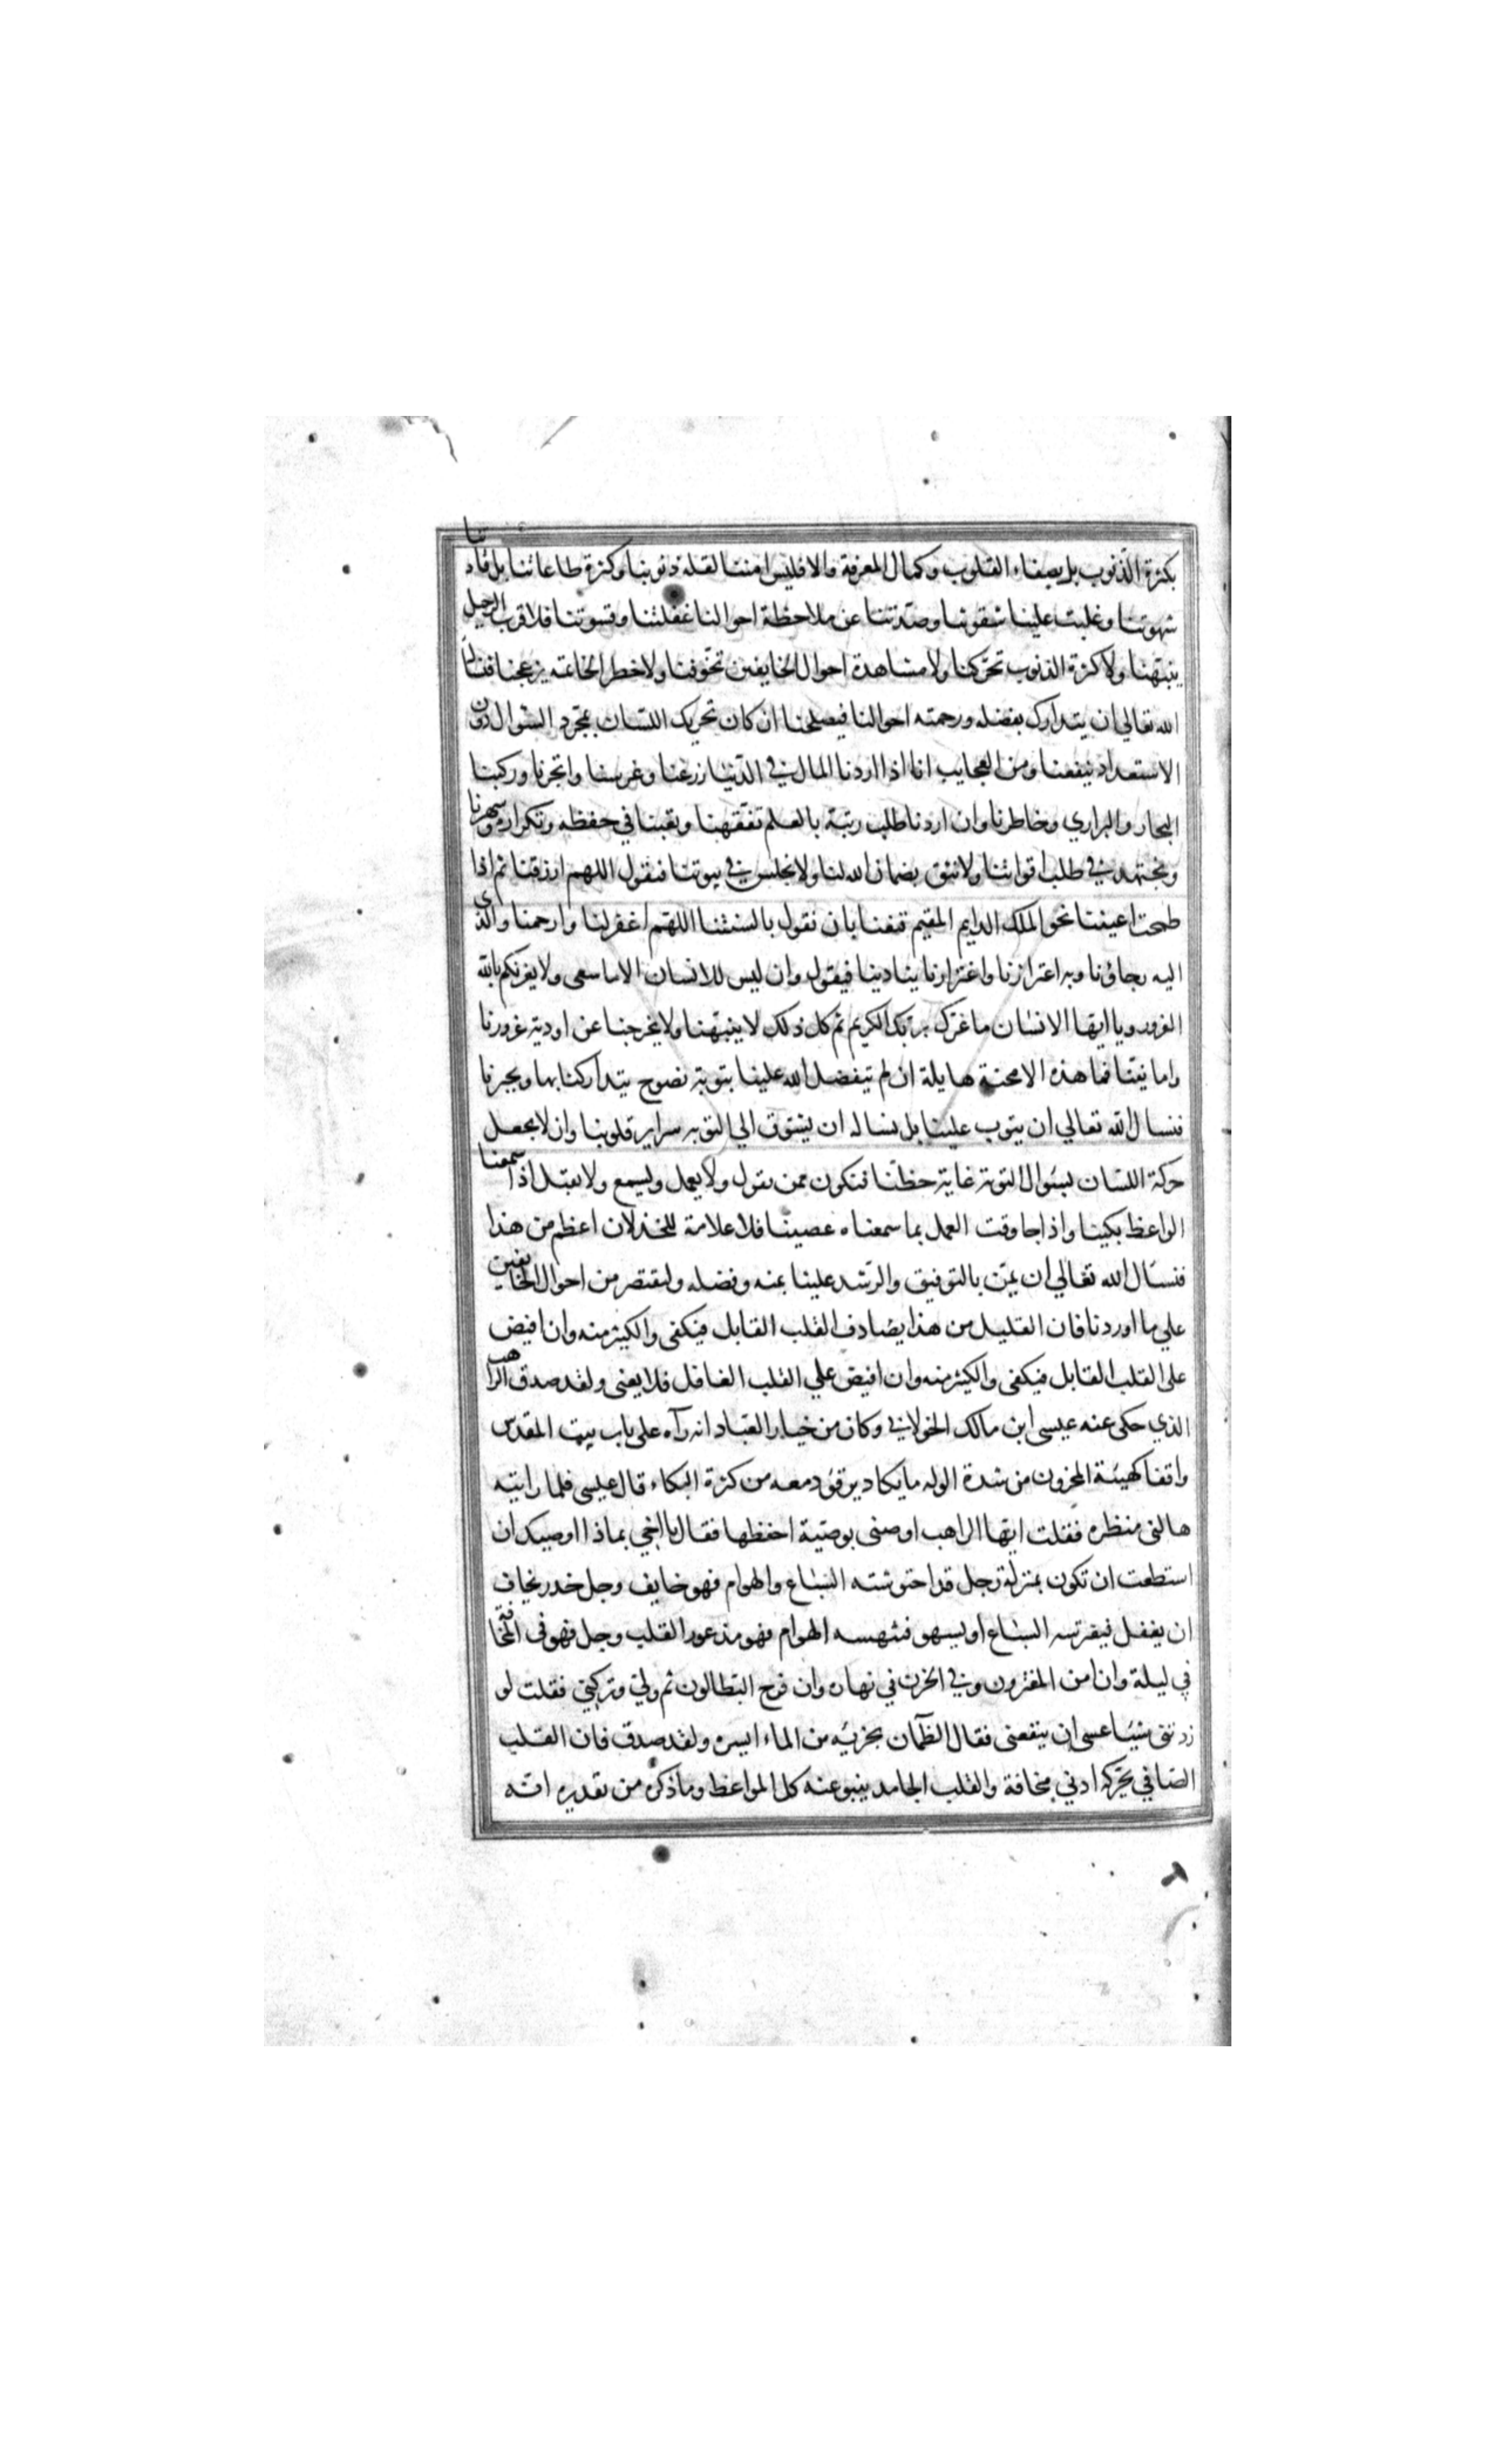 بكثرة الذنوب بل بصفاء القلوب وكمال المعرفة والا فليس امنتنا لقلة ذنوبنا وكثرة طاعاتنا بل قادتنا
شهوتنا وغلبت علينا شقوتنا وصدتنا عن ملاحظة احوالنا غفلتنا وقسوتنا فلا قرب الرحيل
ينبهنا ولا كثرة الذنوب تحركنا ولا مشاهدة احوال الخايفين تخوفنا ولا خطر الخاتمة يزعجنا فنسال
الله تعالي ان يتدارك بفضله ورحمته احوالنا فيصلحنا ان كان تحريك اللسان بمجرد السوال دون
الاستعداد ينفعنا ومن العجايب انا اذا اردنا المال في الدنيا زرعنا وغرسنا واتجرنا وركبنا
البحار والبراري وخاطرنا وان اردنا طلب رتبة بالعلم تفقهنا وتعبنا في حفظه وتكراره وسهرنا
ونجتهد في طلب اقواتنا ولا نثق بضمان الله لنا ولا نجلس في بيوتنا فنقول اللهم ارزقنا ثم اذا
طمحت اعيننا نحو الملك الدايم المقيم قنعنا بان نقول بالسنتنا اللهم اغفر لنا وارحمنا والذي
اليه رجاؤنا وبه اعتزازنا واغترارنا ينادينا فيقول وان ليس للانسان الا ما سعى ولا يغرنكم بالله
الغرور ويا ايها الانسان ما غرك بربك الكريم ثم كل ذلك لا ينبهنا ولا يخرجنا عن اودية غرورنا
وامانينا فما هذه الا محنة هايلة ان لم يتفضل الله علينا بتوبة نصوح يتداركنا بها ويجيرنا
فنسال الله تعالي ان يتوب علينا بل نساله ان يشوق الي التوبه سراير قلوبنا وان لا يجعل
حركة اللسان بسوال التوبة غاية حظنا فنكون ممن يقول ولا يعمل ويسمع ولا يقبل اذا سمعنا
الواعظ بكينا واذا جا وقت العمل بما سمعناه عصينا فلا علامة للخذلان اعظم من هذا
فنسال الله تعالي ان يمن بالتوفيق والرشد علينا بمنه وفضله ولنقتصر من احوال الخايفين
علي ما اوردنا فان القليل من هذا يصادف القلب القابل فيكفى والكثير منه وان افيض
على القلب القابل فيكفى والكثير منه وان افيض علي القلب الغافل فلا يغنى ولقد صدق الراهب
الذي حكى عنه عيسى ابن مالك الخولاني وكان من خيار العباد انه رآه على باب بيت المقدس
واقفا كهيئة المحزون من شدة الوله ما يكاد يرقؤ دمعه من كثرة البكاء قال عيسى فلما رايته
هالنى منظره فقلت ايها الراهب اوصنى بوصية احفظها فقال يا اخي بماذا اوصيك ان
استطعت ان تكون بمنزلة رجل قد احتوشته السباع والهوام فهو خايف وجل حذر يخاف
ان يغفل فيفترسه السباع او يسهو فتنهسه الهوام فهو مذعور القلب وجل فهو فى المخافة
في ليلة وان امن المغترون وفي الحزن في نهاره وان فرح البطالون ثم ولي وتركني فقلت لو
زدتنى شيئا عسى ان ينفعنى فقال الظمآن يجزيه من الماء ايسره ولقد صدق فان القلب
الصافي يحركه ادني مخافة والقلب الجامد ينبو عنه كل المواعظ وما ذكره من تقديره انه